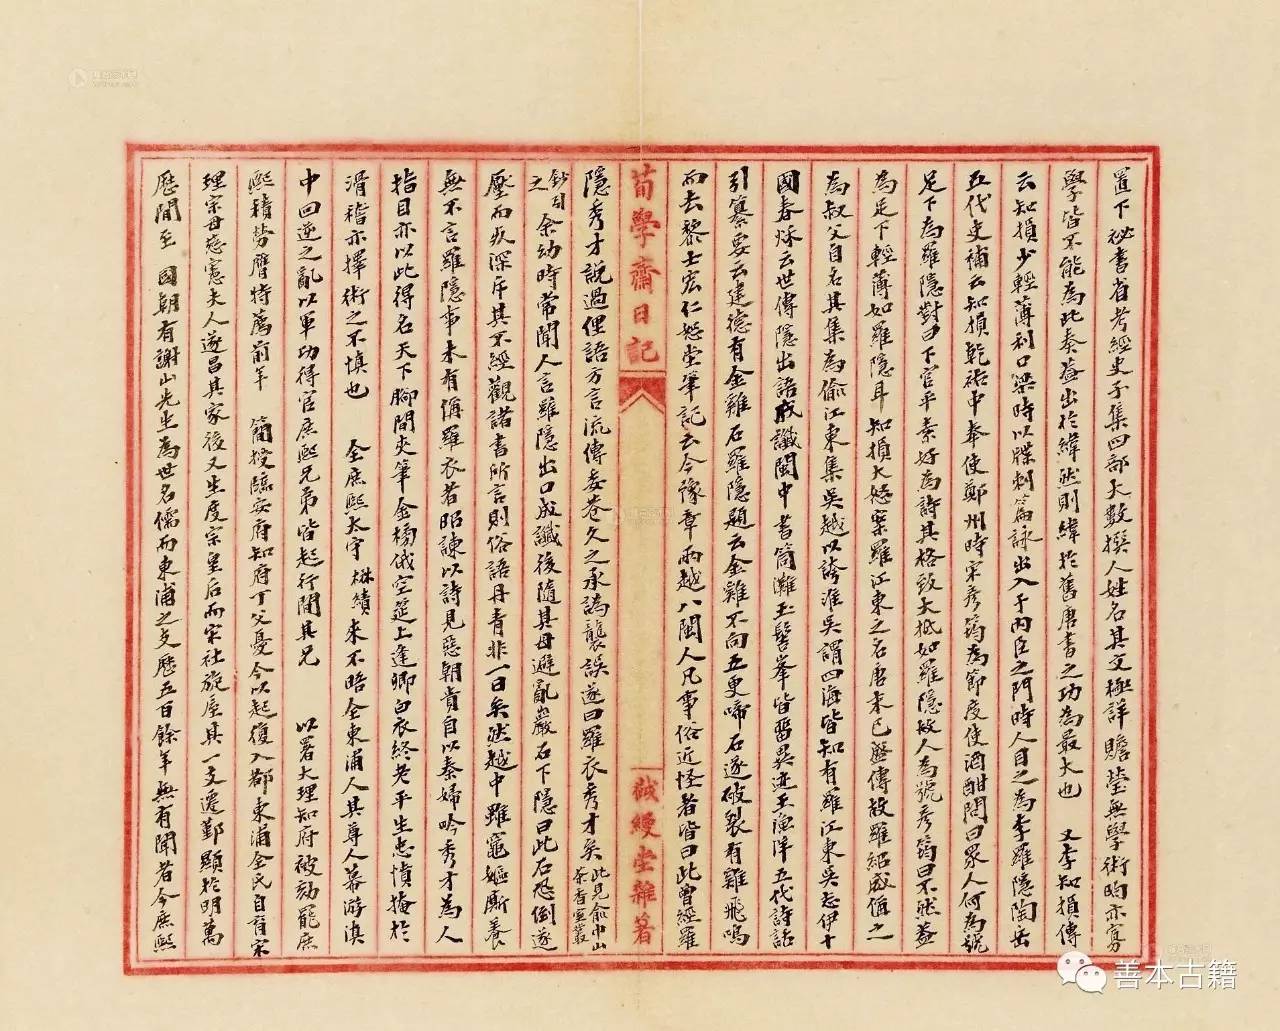 置下祕書省考經史子集四部大數撰人姓名其文極詳贍瑩無學術昫亦寡
學皆不能為此奏蓋出於緯然則緯於舊唐書之功為最大也　又李知損傳
云知損少輕薄利口梁時以牒刺篇詠出入于內臣之門時人目之為李羅隱陶岳
五代史補云知損乾祐中奉使鄭州時宋彥筠為節度使酒酣問曰眾人何為號
足下為羅隱對曰下官平素好為詩其格致大抵如羅隱故人為號彥筠曰不然蓋
為足下輕薄如羅隱耳知損大怒案羅江東之名唐末已盛傳故羅紹威偁之
為叔父自名其集為偷江東集吳越以誇淮吳謂四海皆知有羅江東吳志伊十
國春秋云世傳隱出語成讖閩中書筒灘玉髻峯皆留異迹王漁洋五代詩話
引纂要云建德有金雞石羅隱題云金雞不向五更啼石遂破裂有雞飛鳴
而去黎士宏仁恕堂筆記云今豫章兩越八閩人凡事俗近怪者皆曰此曾經羅
荀學齋日記
越縵堂雜著
隱秀才說過俚語方言流傳委巷久之承譌襲誤遂曰羅衣秀才矣此見俞中山茶香室叢
鈔引之余幼時常聞人言羅隱出口成讖後隨其母避亂巖石下隱曰此石恐倒遂
壓而歿深斥其不經觀諸書所言則俗語丹青非一日矣然越中雖竈嫗廝養
無不言羅隱事未有偁羅衣者昭諫以詩見惡朝貴自以秦婦吟秀才為人
指目亦以此得名天下腳間夾筆金榜俄空筵上逢卿白衣終老平生忠憤掩於
滑稽亦擇術之不慎也　全庶熙太守楙績來不晤全東浦人其尊人幕游滇
中回逆之亂以軍功得官庶熙兄弟皆起行間其兄　以署大理知府被劾罷庶
熙積勞膺特薦前年　簡授臨安府知府丁父憂今以起復入都東浦全氏自育宋
理宗母慈憲夫人遂昌其家後又生度宗皇后而宋社旋屋其一支遷鄞顯於明萬
歷間至　國朝有謝山先生為世名儒而東浦之支歷五百餘年無有聞者今庶熙
善本古籍